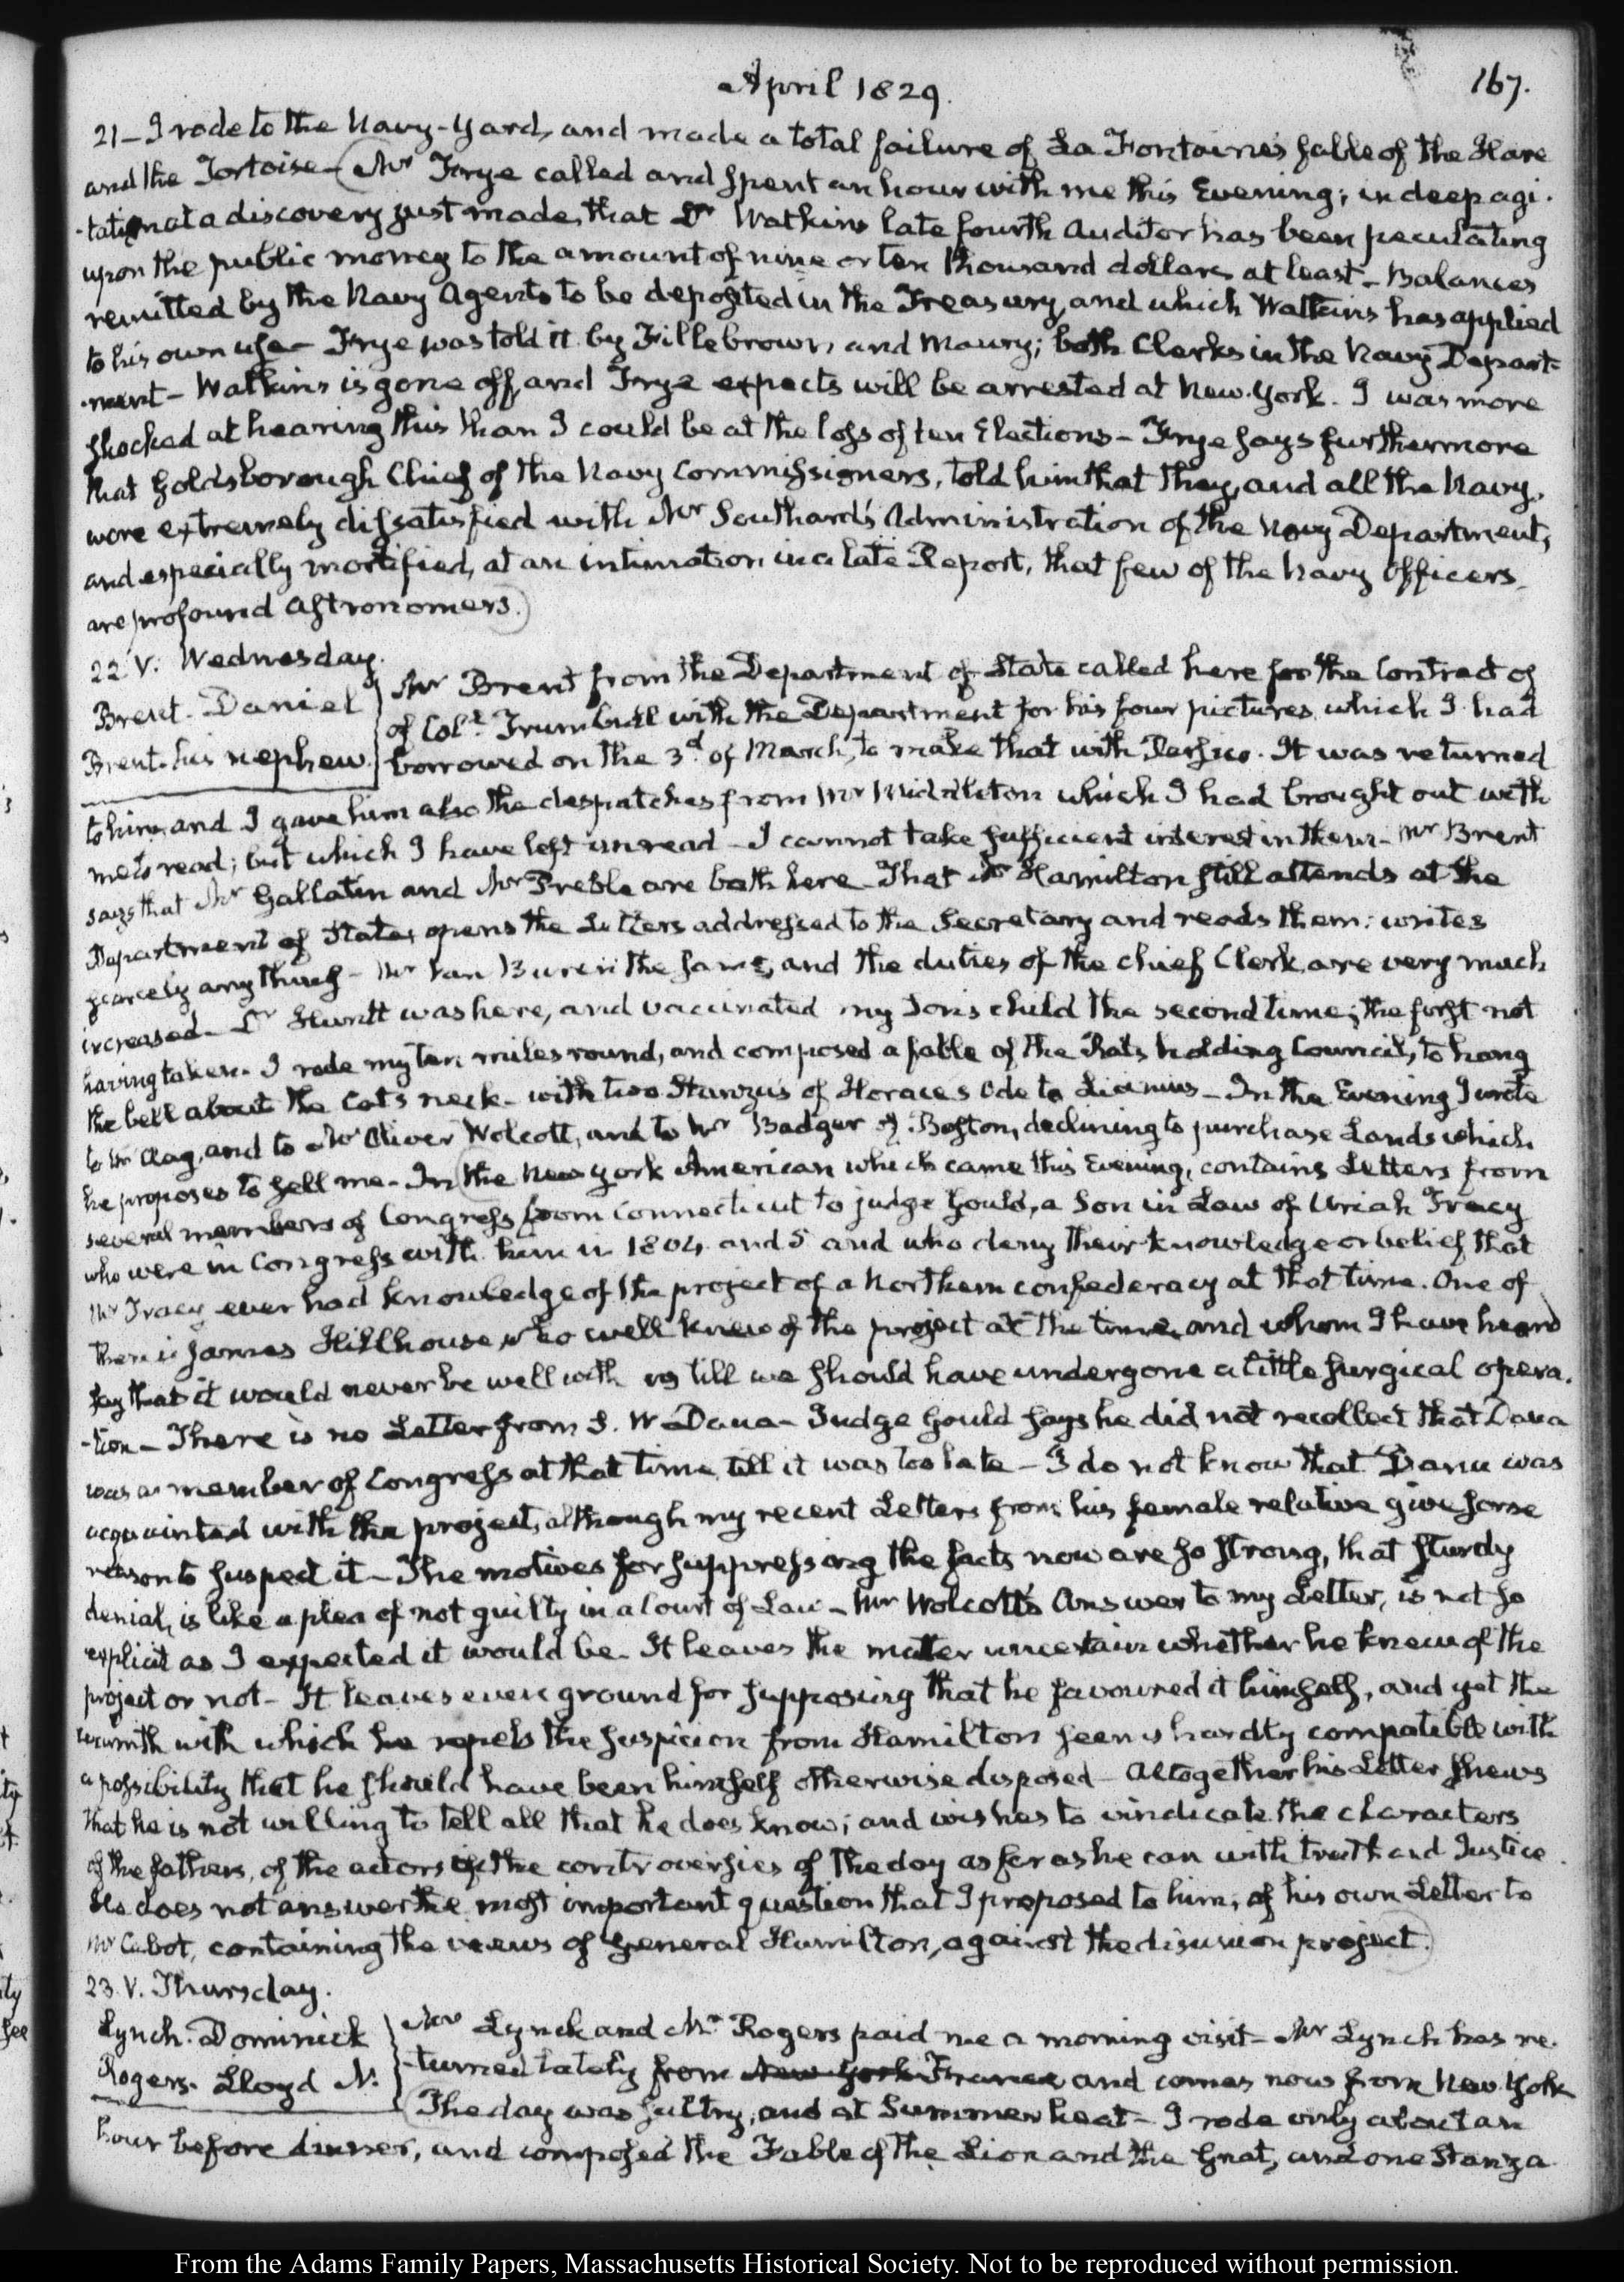 April 1829.
167.
21 – I rode to the Navy-Yard, and made a total failure of La Fontaine's fable of the Hare
and the Tortoise – (Mr Frye called and spent an hour with me this Evening; in deep agi-
-tation at a discovery just made, that Dr Watkins late fourth Auditor has been peculating
upon the public money to the amount of nine or ten thousand dollars at least – Balances
remitted by the Navy Agents to be deposited in the Treasury, and which Watkins has applied
to his own use – Frye was told it by Fillebrown, and Maury; both Clerks in the Navy Depart-
-ment – Watkins is gone off, and Frye expects will be arrested at New-York. I was more
shocked at hearing this than I could be at the loss of ten Elections – Frye says furthermore
that Goldsborough Chief of the Navy Commissioners, told him that they, and all the Navy,
were extremely dissatisfied with Mr Southard's Administration of the Navy Department,
and especially mortified, at an intimation in a late Report, that few of the Navy Officers
are profound Astronomers.)
22. V. Wednesday.
Brent. Daniel
Brent. his nephew.
Mr Brent from the Department of State called here for the Contract of
of Colł. Trumbull with the Department for his four pictures, which I had
borrowed on the 3d of March, to make that with Persico. It was returned
to him, and I gave him also the despatches from Mr Middleton which I had brought out with
me to read; but which I have left unread – I cannot take sufficient interest in them – Mr Brent
says that Mr Gallatin and Mr Preble are both here – That Mr Hamilton still attends at the
Department of State, opens the Letters addressed to the Secretary and reads them: writes
scarcely any thing – Mr Van Buren the same, and the duties of the chief Clerk are very much
increased – Dr Huntt was here, and vaccinated my Son's child the second time; the first not
having taken. I rode my ten miles round, and composed a fable of the Rats holding Council, to hang
the bell about the Cat's neck – with two Stanza's of Horace's Ode to Licinius – In the Evening I wrote
to Mr Clay, and to Mr Oliver Wolcott, and to Mr Badger of Boston, declining to purchase Lands which
he proposes to sell me – In (the New York American which came this Evening, contains Letters from
several members of Congress from Connecticut to judge Gould, a Son in Law of Uriah Tracy
who were in Congress with him in 1804 and 5 and who deny their knowledge or belief that
Mr Tracy ever had knowledge of the project of a Northern confederacy at that time. One of
them is James Hillhouse, who well knew of the project at the time, and whom I have heard
say that it would never be well with us till we should have undergone a little surgical opera-
-tion – There is no Letter from S. W Dana – Judge Gould says he did not recollect that Dana
was a member of Congress at that time, till it was too late – I do not know that Dana was
acquainted with the project, although my recent Letters from his female relative give some
reason to suspect it – The motives for suppressing the facts now are so strong, that sturdy
denial, is like a plea of not guilty in a Court of Law – Mr Wolcott's Answer to my Letter, is not so
explicit as I expected it would be. It leaves the matter uncertain whether he knew of the
project or not – It leaves even ground for supposing that he favoured it himself, and yet the
warmth with which he repels the suspicion from Hamilton seems hardly compatible with
a possibility that he should have been himself otherwise disposed – Altogether his Letter shews
that he is not willing to tell all that he does know; and wishes to vindicate the characters
of the fathers, of the actors of the controversies of the day as far as he can with truth and Justice.
He does not answer the most important question that I proposed to him, of his own Letter to
Mr Cabot, containing the views of General Hamilton, against the disunion project.)
23. V. Thursday.
Lynch. Dominick
Rogers. Lloyd N.
Mr Lynch and Mr Rogers paid me a morning visit – Mr Lynch has re-
-turned lately from New York France and comes now from New York
(The day was sultry, and at Summer heat – I rode only about an
hour before dinner, and composed the Fable of the Lion and the Gnat, and one Stanza
From the Adams Family Papers, Massachusetts Historical Society. Not to be reproduced without permission.